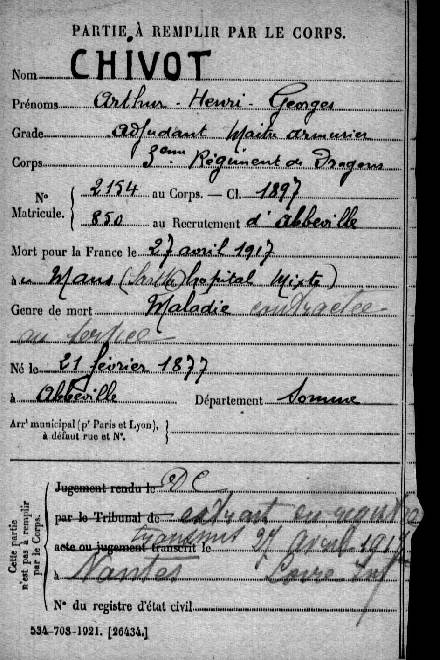 PARTIE À REMPLIR PAR LE CORPS.
Nom CHIVOT
Prénoms Arthur - Henri - Georges
Grade Adjudant Maitre armurier
Corps 3eme Régiment de Dragons
N° Matricule. 2154 au Corps. — Cl. 1897
850 au Recrutement d'Abbeville
Mort pour la France le 27 avril 1917
à Mans (Sarthe) hôpital Mixte
Genre de mort Maladie contractée
au service
Né le 21 février 1877
à Abbeville Département Somme
Arr¹ municipal (pʳ Paris et Lyon),
à défaut rue et N°.
Cette partie n'est pas à remplir par le Corps.
Jugement rendu le
par le Tribunal de extrait du registre
acte ou jugement transcrit le transmis 27 avril 1917
à Nantes Loire Inf
N° du registre d'état civil
534-708-1921. [26434.]